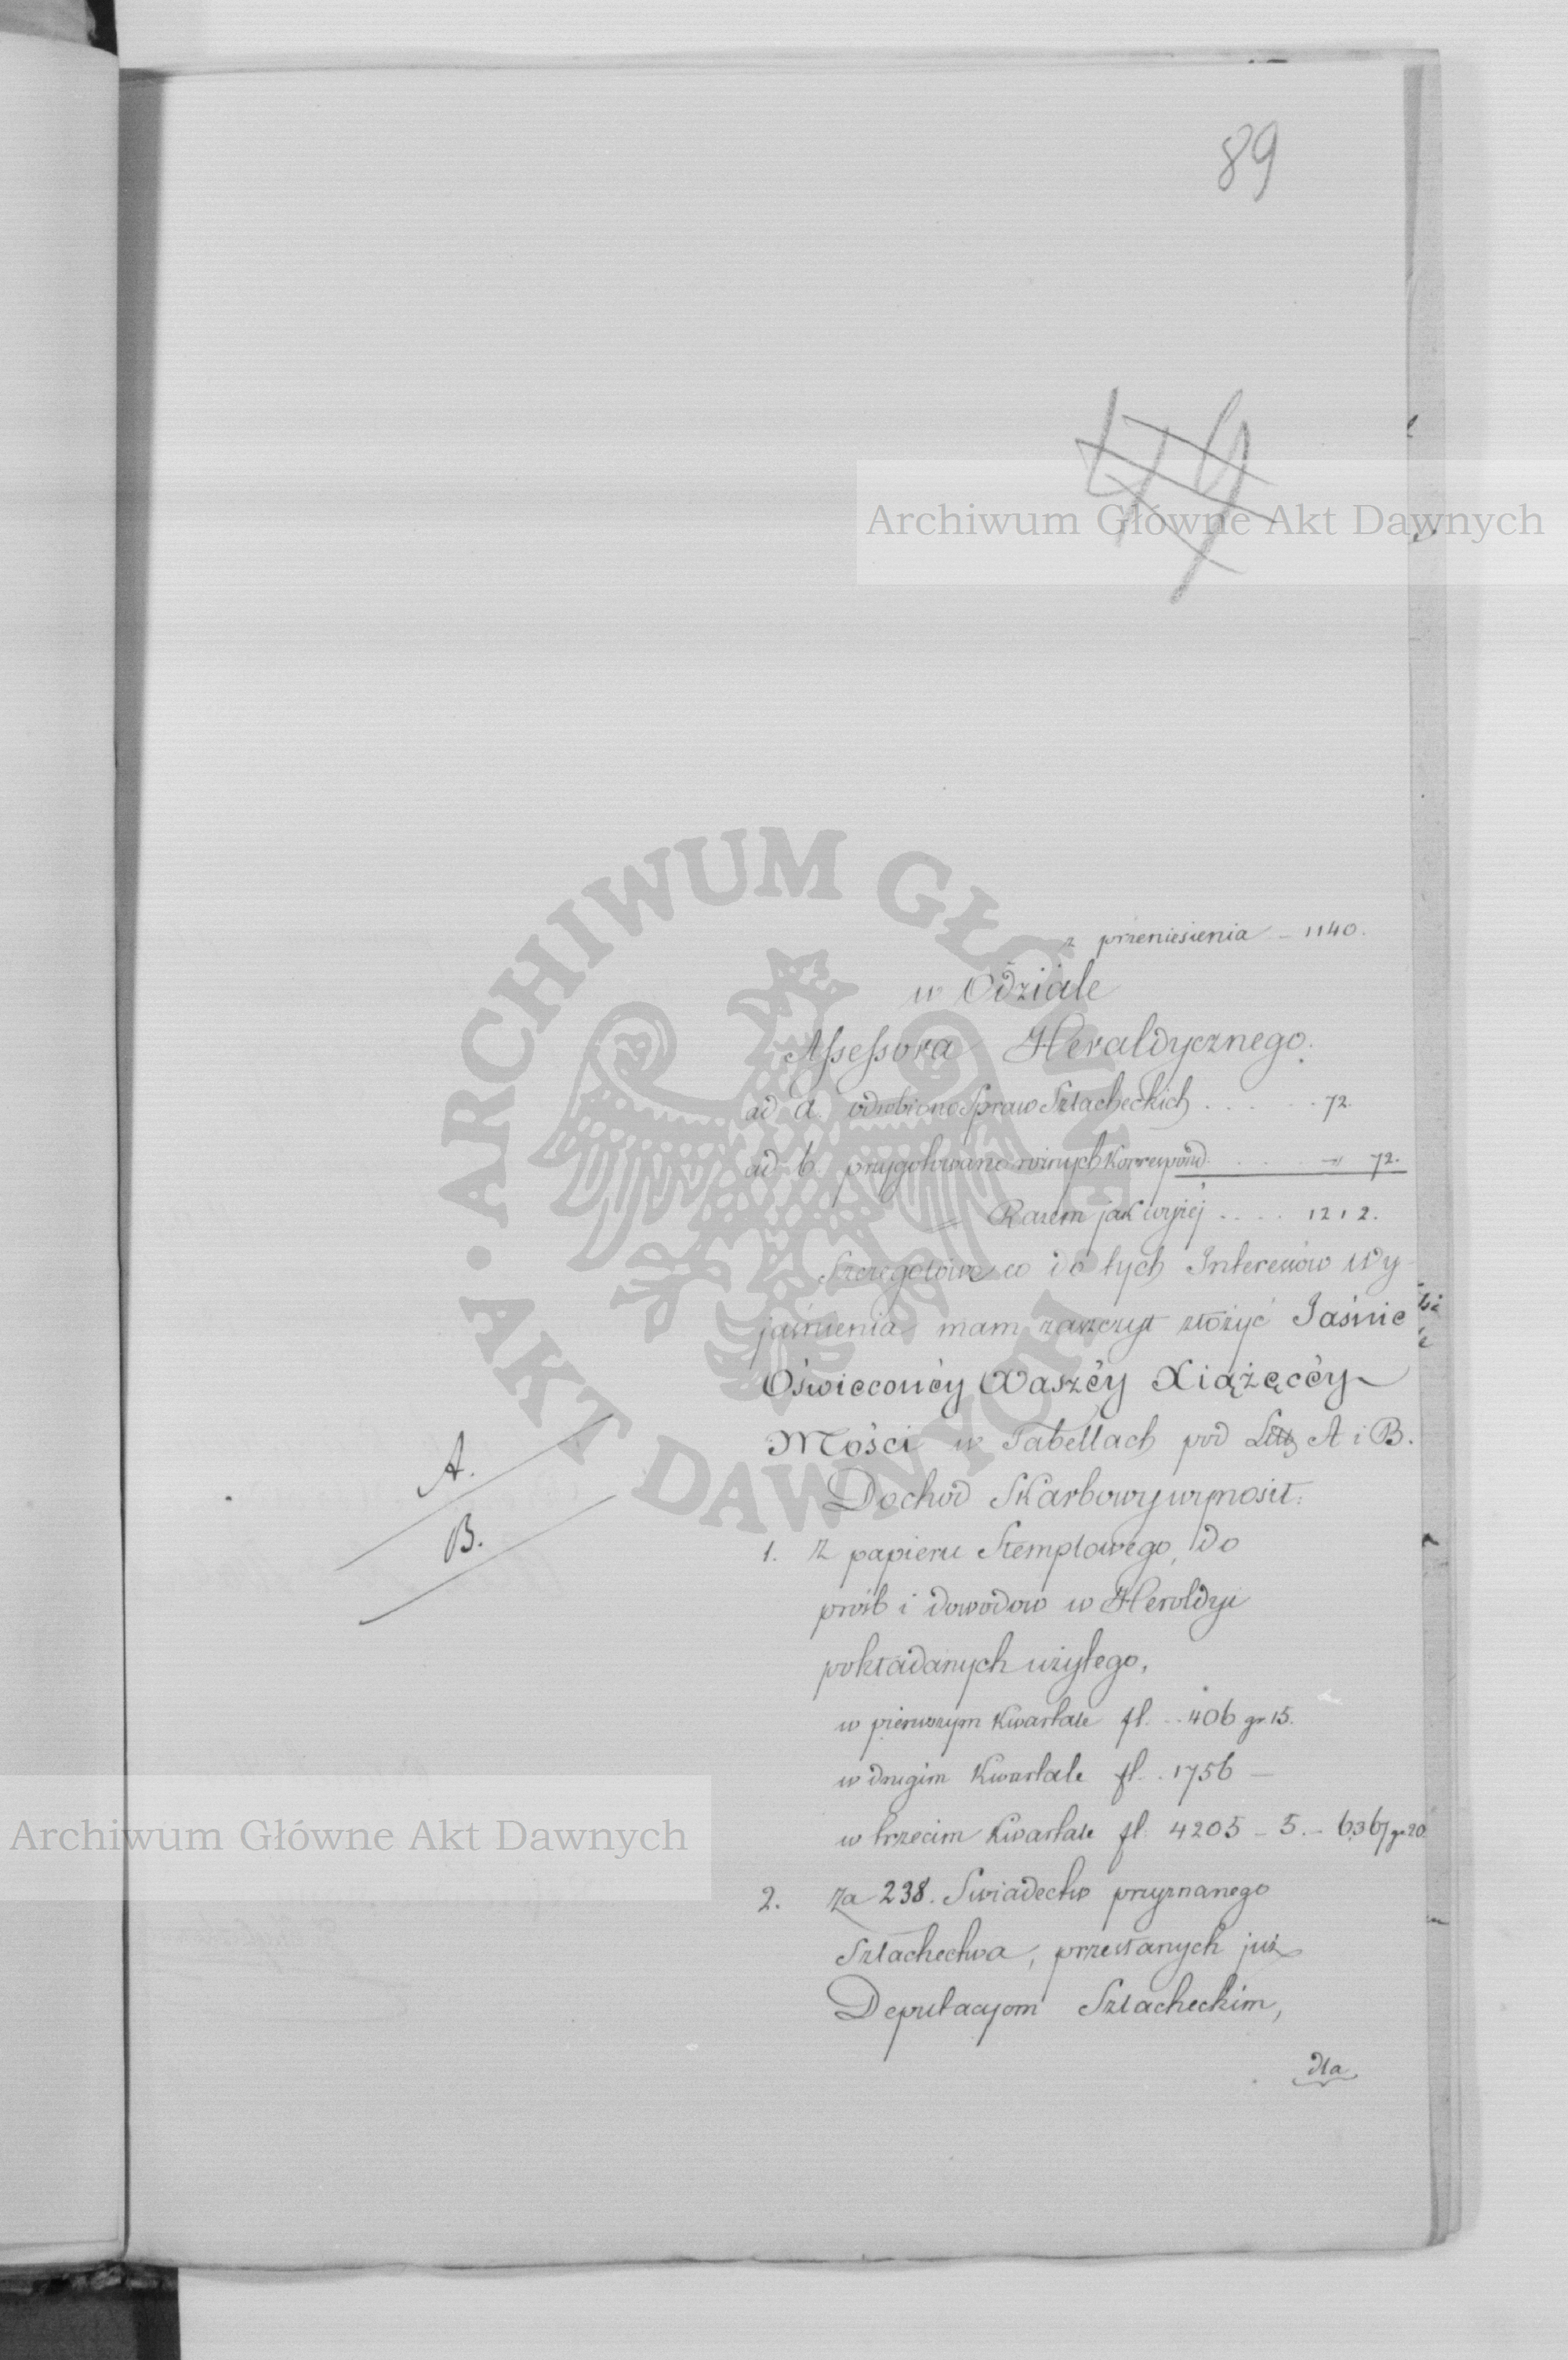 89
z przeniesienia – 1140.
w Odziale
Assessora Heraldycznego.
ad a. odrobiono Spraw Szlacheckich . . . . . 72.
ad b. przygotowano roznych Korrespond. . . . . – " 72.
Razem jak wyżéj . . . . 1212.
Szczegółowe co do tych Interessów Wy-
jaśnienia mam zaszczyt złożyć Jaśnie
Oświeconéy Waszéy Xiążęcéy
Mości w Tabellach pod A i B.
A.
B.
Dochód Skarbowy wynosił:
1. Z papieru Stemplowego, do
prośb i dowodów w Heroldyi
pokładanych użytego,
w pierwszym Kwartale fl. . . 406 gr. 15.
w drugim Kwartale fl. . 1756 —
w trzecim Kwartale fl. 4205 – 5. – 6367 gr 20
2. Za 238. Swiadectw przyznanego
Szlachectwa, przesłanych już
Deputacyom Szlacheckim,
dla
Archiwum Główne Akt Dawnych
Archiwum Główne Akt Dawnych
ARCHIWUM GŁÓWNE • AKT DAWNYCH •